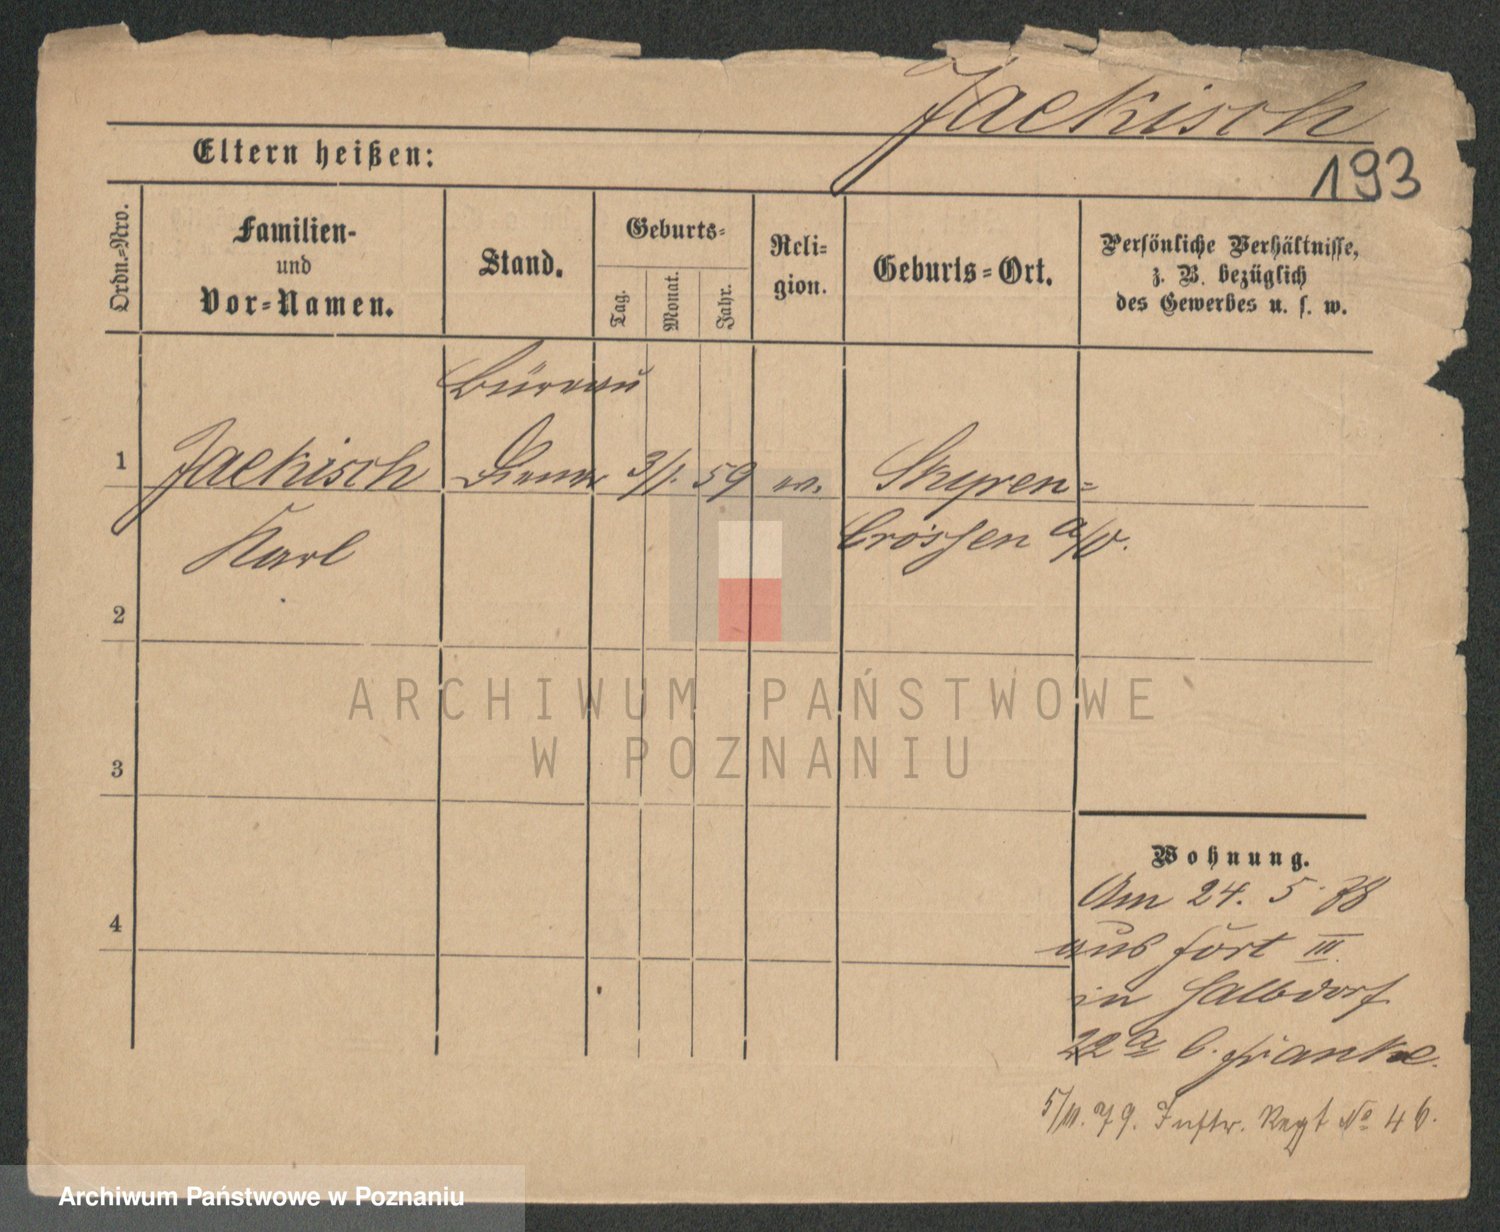 Jaekisch
193
Eltern heißen:
Ordn.-Nro.
Familien-
und
Vor-Namen.
Stand.
Geburts-
Tag.
Monat.
Jahr.
Reli-
gion.
Geburts-Ort.
Persönliche Verhältnisse,
z. B. bezüglich
des Gewerbes u. s. w.
Büreau
1 Jaekisch Diener 3/1. 59 ev. Skyren-
Karl Crossen a/O.
2
3
4
Wohnung.
Am 24. 5. 78
aus Fort III.
in Halbdorf
22a b. Franke.
5/11. 79. Inftr. Regt No 46.
ARCHIWUM PAŃSTWOWE
W POZNANIU
Archiwum Państwowe w Poznaniu